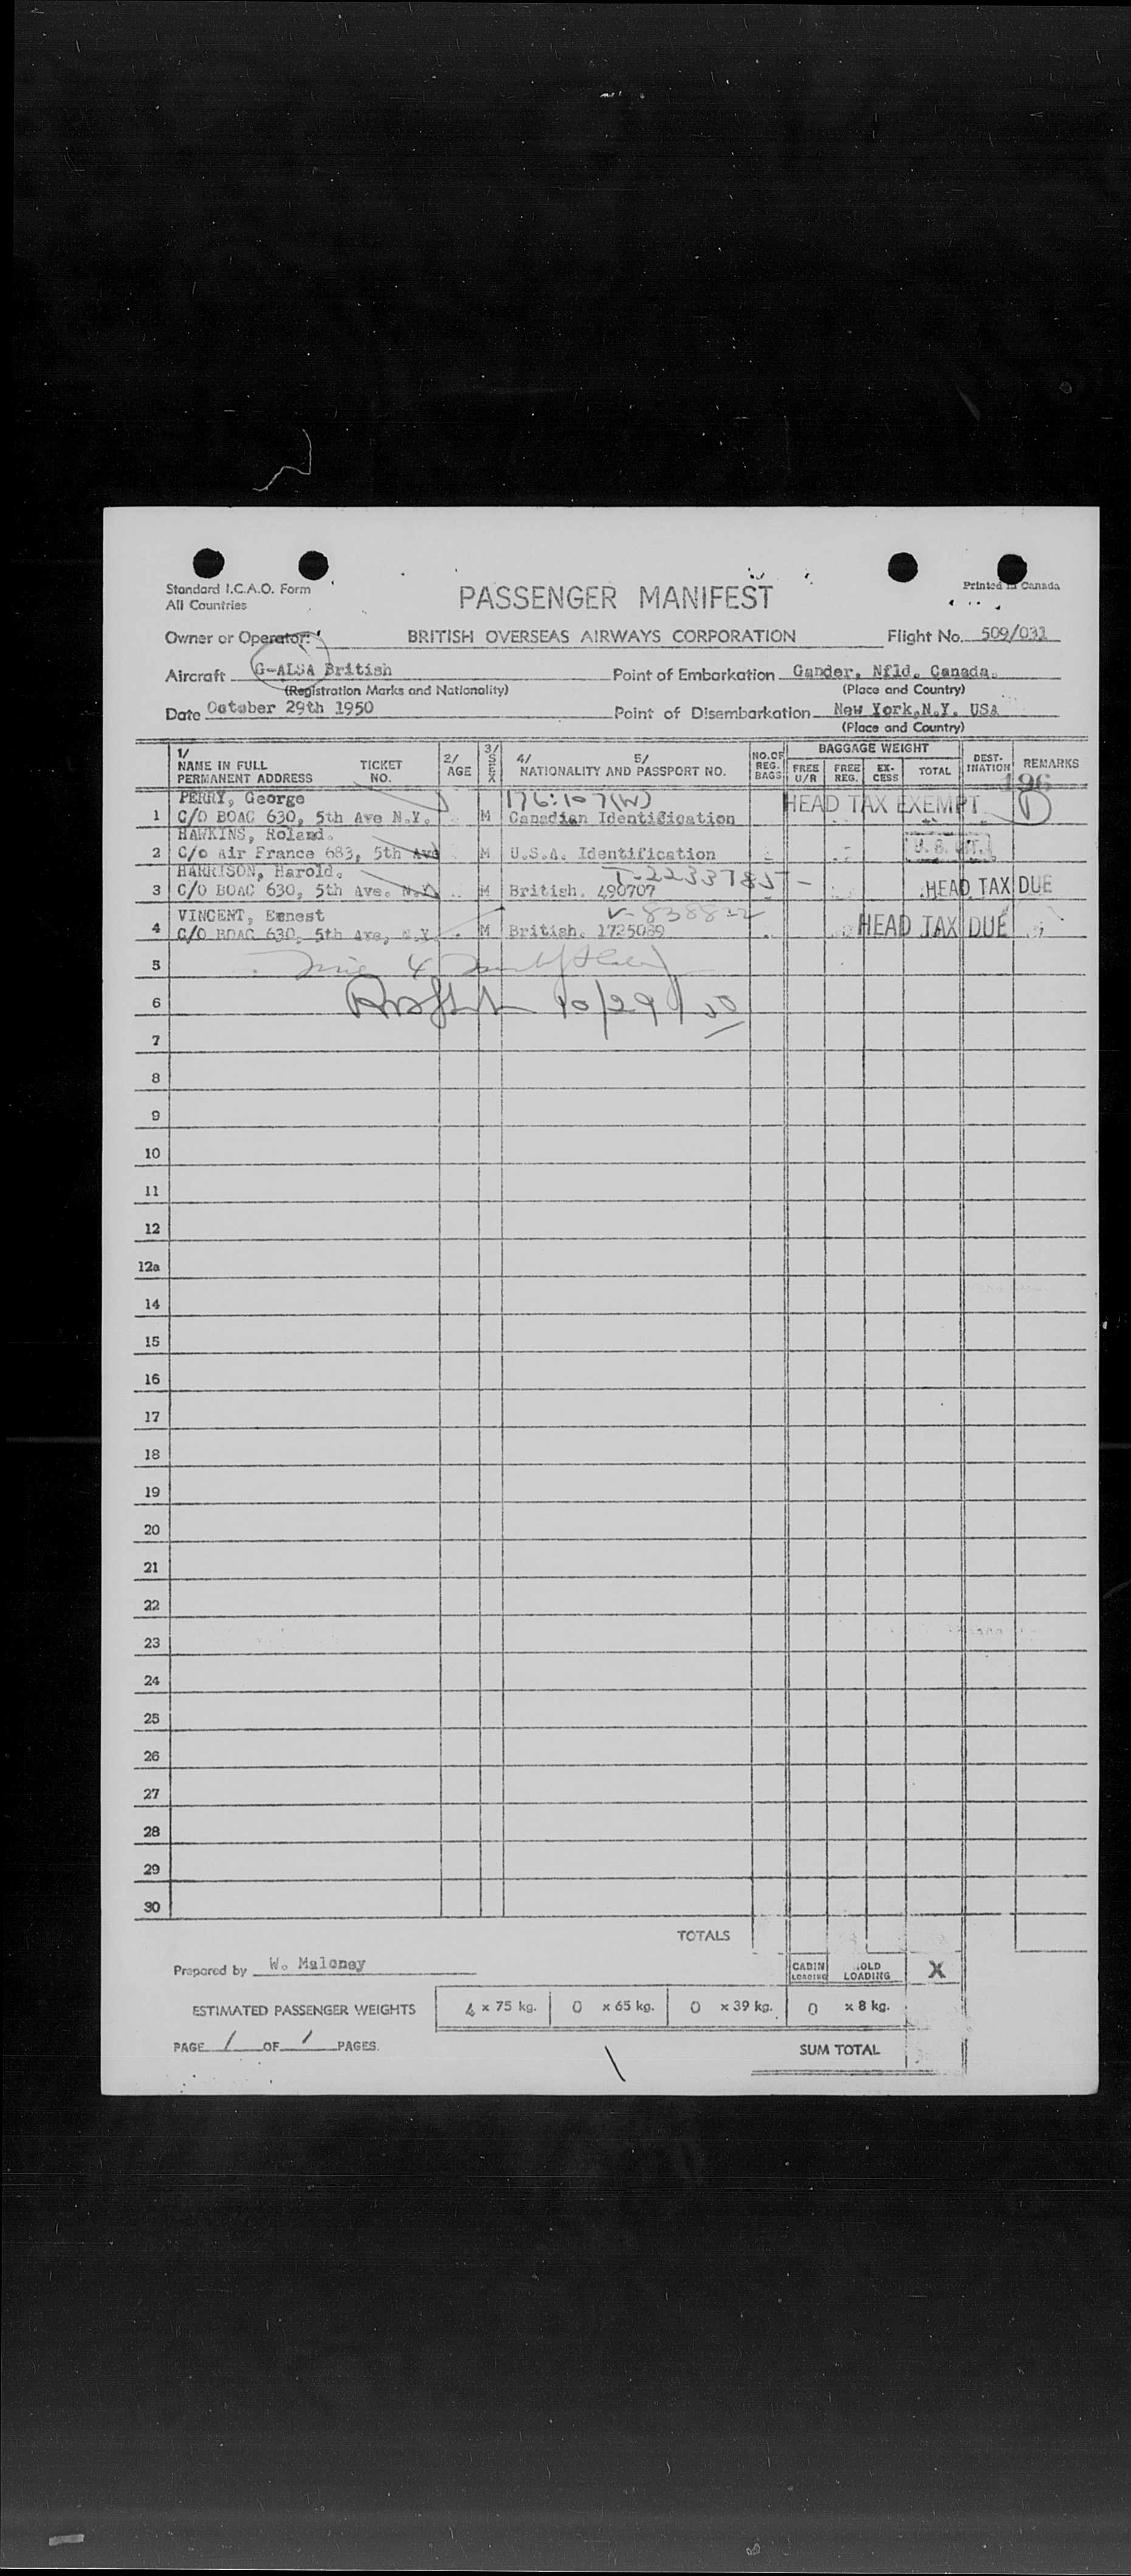 Standard I.C.A.O. Form
All Countries
PASSENGER MANIFEST
Printed in Canada
Owner or Operator: BRITISH OVERSEAS AIRWAYS CORPORATION Flight No. 509/031
Aircraft G-ALSA British Point of Embarkation Gander, Nfld. Canada.
(Registration Marks and Nationality) (Place and Country)
Date October 29th 1950 Point of Disembarkation New York,N.Y. USA
(Place and Country)
1/ NAME IN FULL PERMANENT ADDRESS TICKET NO. 2/ AGE 3/ SEX 4/ 5/ NATIONALITY AND PASSPORT NO. NO.OF REG. BAGS BAGGAGE WEIGHT FREE U/R FREE REG. EX-CESS TOTAL DEST-INATION REMARKS
196
PERRY, George 176:107(W) HEAD TAX EXEMPT
1 C/O BOAC 630, 5th Ave N.Y. M Canadian Identification
HAWKINS, Roland.
2 C/o Air France 683, 5th Ave M U.S.A. Identification
HARRISON, Harold.
3 C/O BOAC 630, 5th Ave. N.Y. M British. 490707 HEAD TAX DUE
VINCENT, Ernest
4 C/O BOAC 630, 5th Ave, N.Y. M British. 1725089 HEAD TAX DUE
5
6 10/29/50
7
8
9
10
11
12
12a
14
15
16
17
18
19
20
21
22
23
24
25
26
27
28
29
30
TOTALS
Prepared by W. Maloney CABIN LOADING HOLD LOADING X
ESTIMATED PASSENGER WEIGHTS 4 x 75 kg. 0 x 65 kg. 0 x 39 kg. 0 x 8 kg.
PAGE 1 OF 1 PAGES. SUM TOTAL